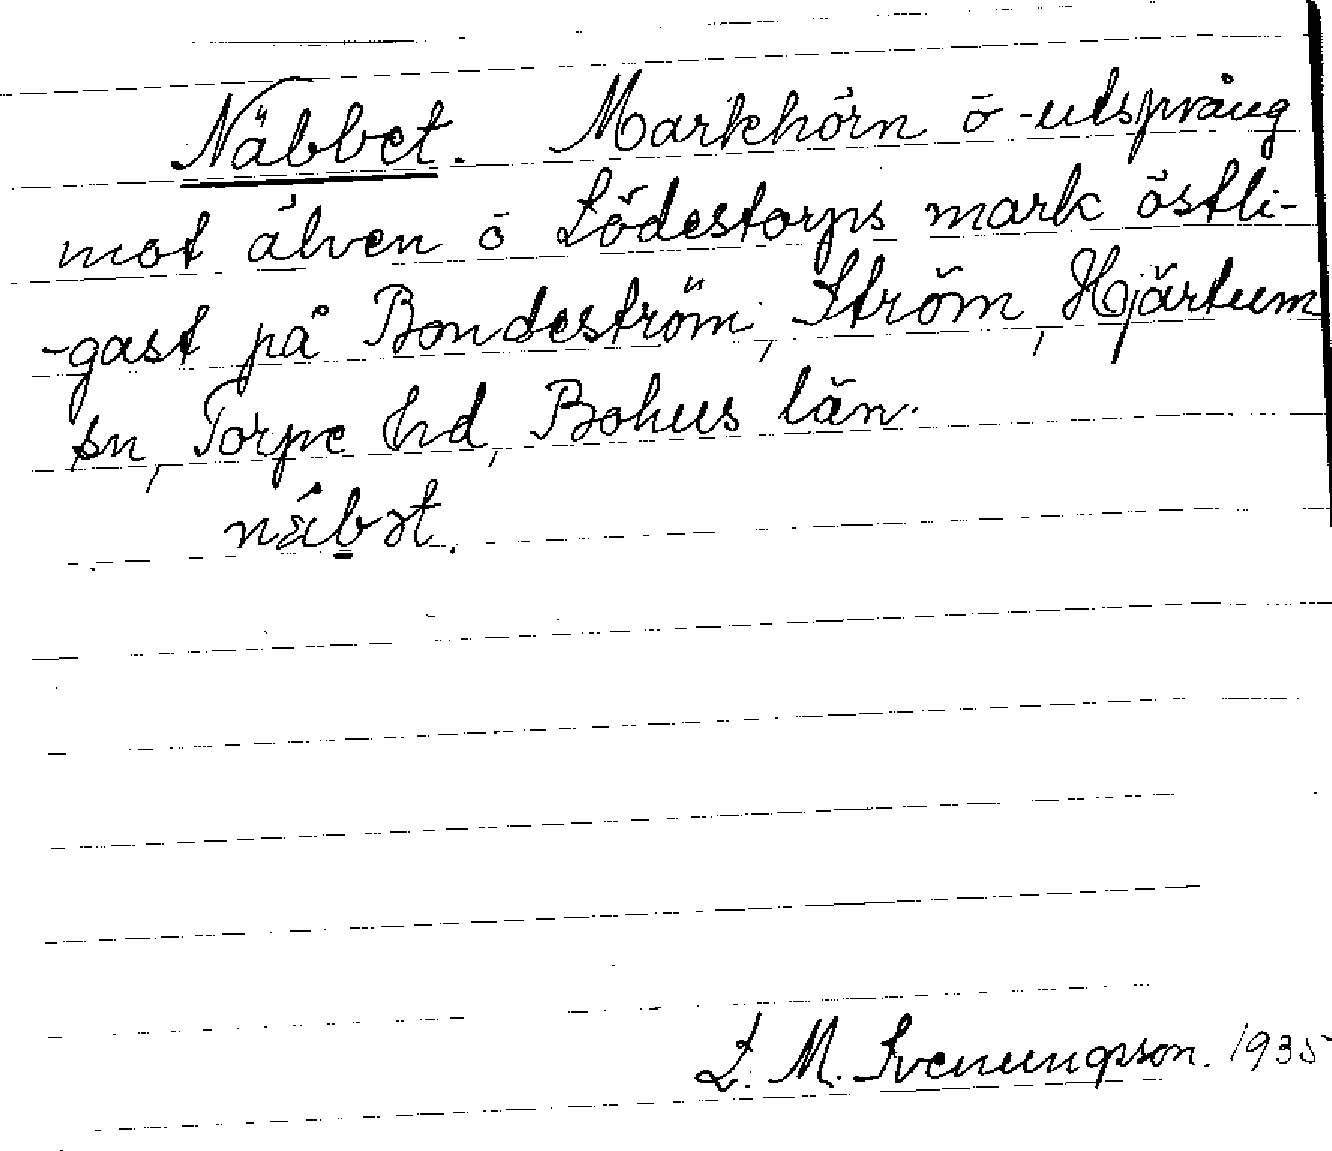 Näbbet. Markhörn o -utsprång
mot älven o Lödestorps mark östli-
-gast på Bondeström, Ström, Hjärtum
sn, Torpe hd, Bohus län.
L. M. Svenungsson. 1935